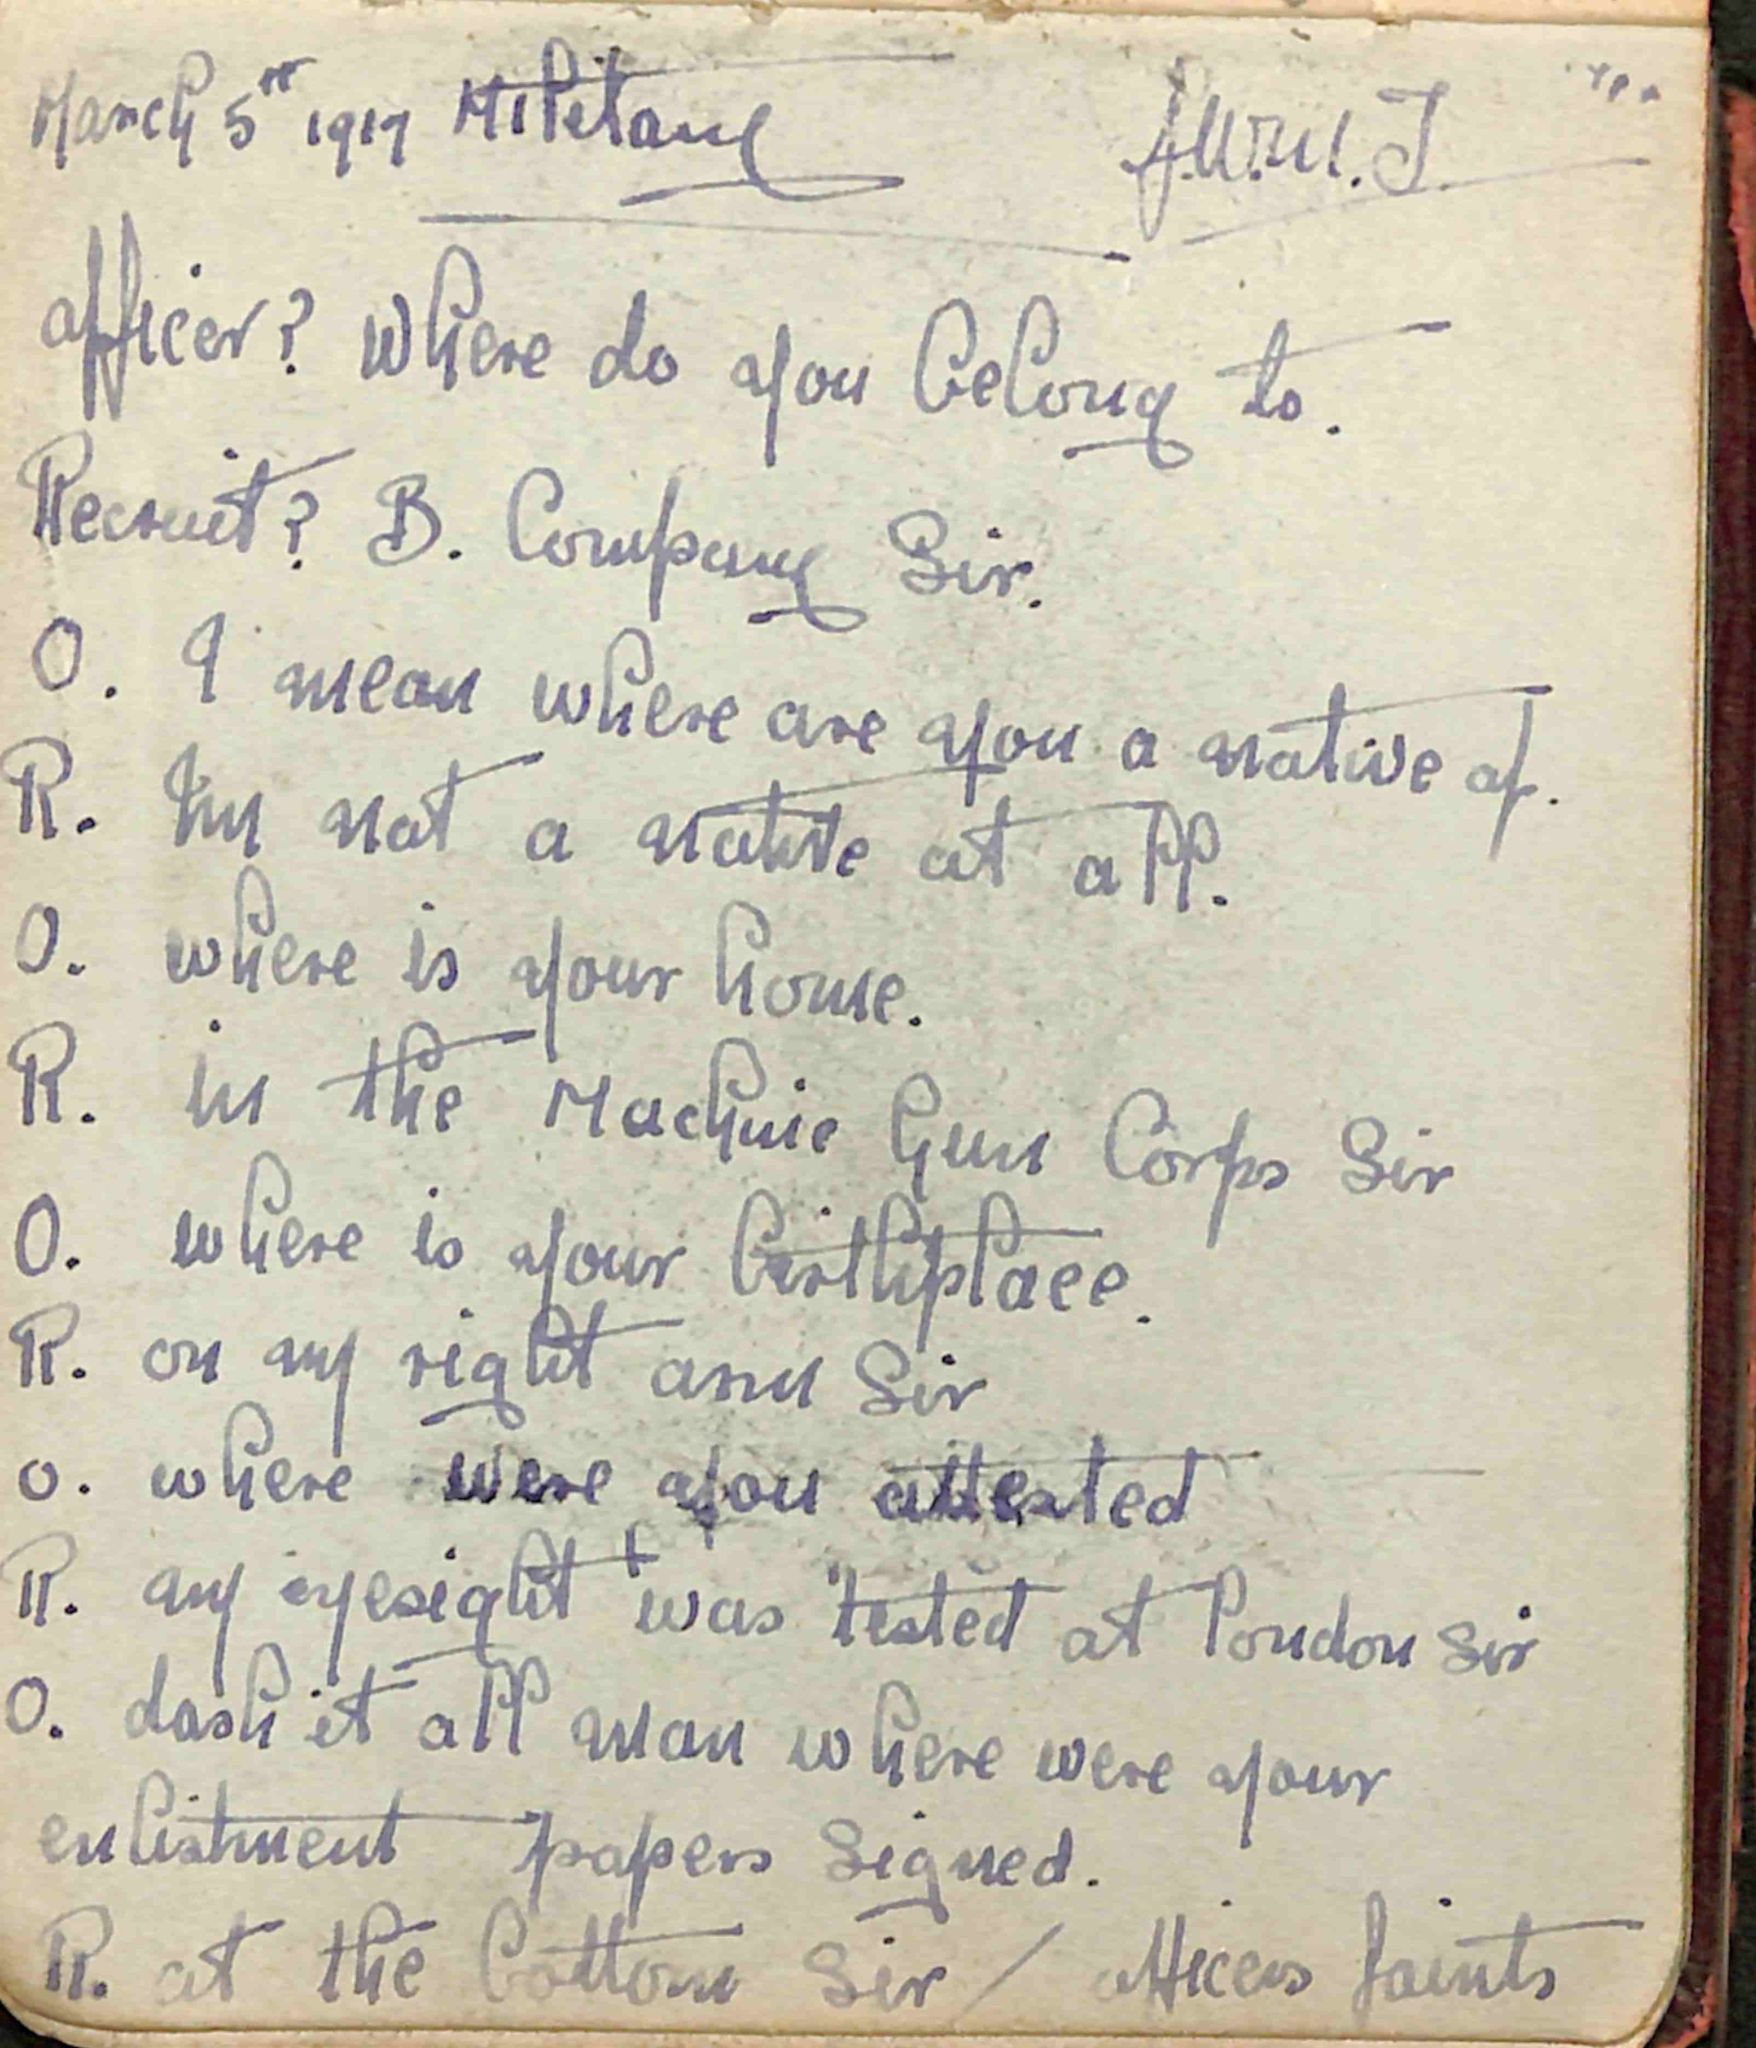 March 5th 1917 Military
Officer? Where do you belong to.
Recruit? B. Company Sir.
O. I mean where are you a native of.
R. Im not a native at all.
O. where is your home.
R. in the Machine Gun Corps Sir
O. where is your birthplace.
R. on my right arm Sir
O. where were you attested
R. my eyesight was tested at London Sir
O. dash it all man where were your
enlistment papers signed.
R. at the bottom Sir / officers faints